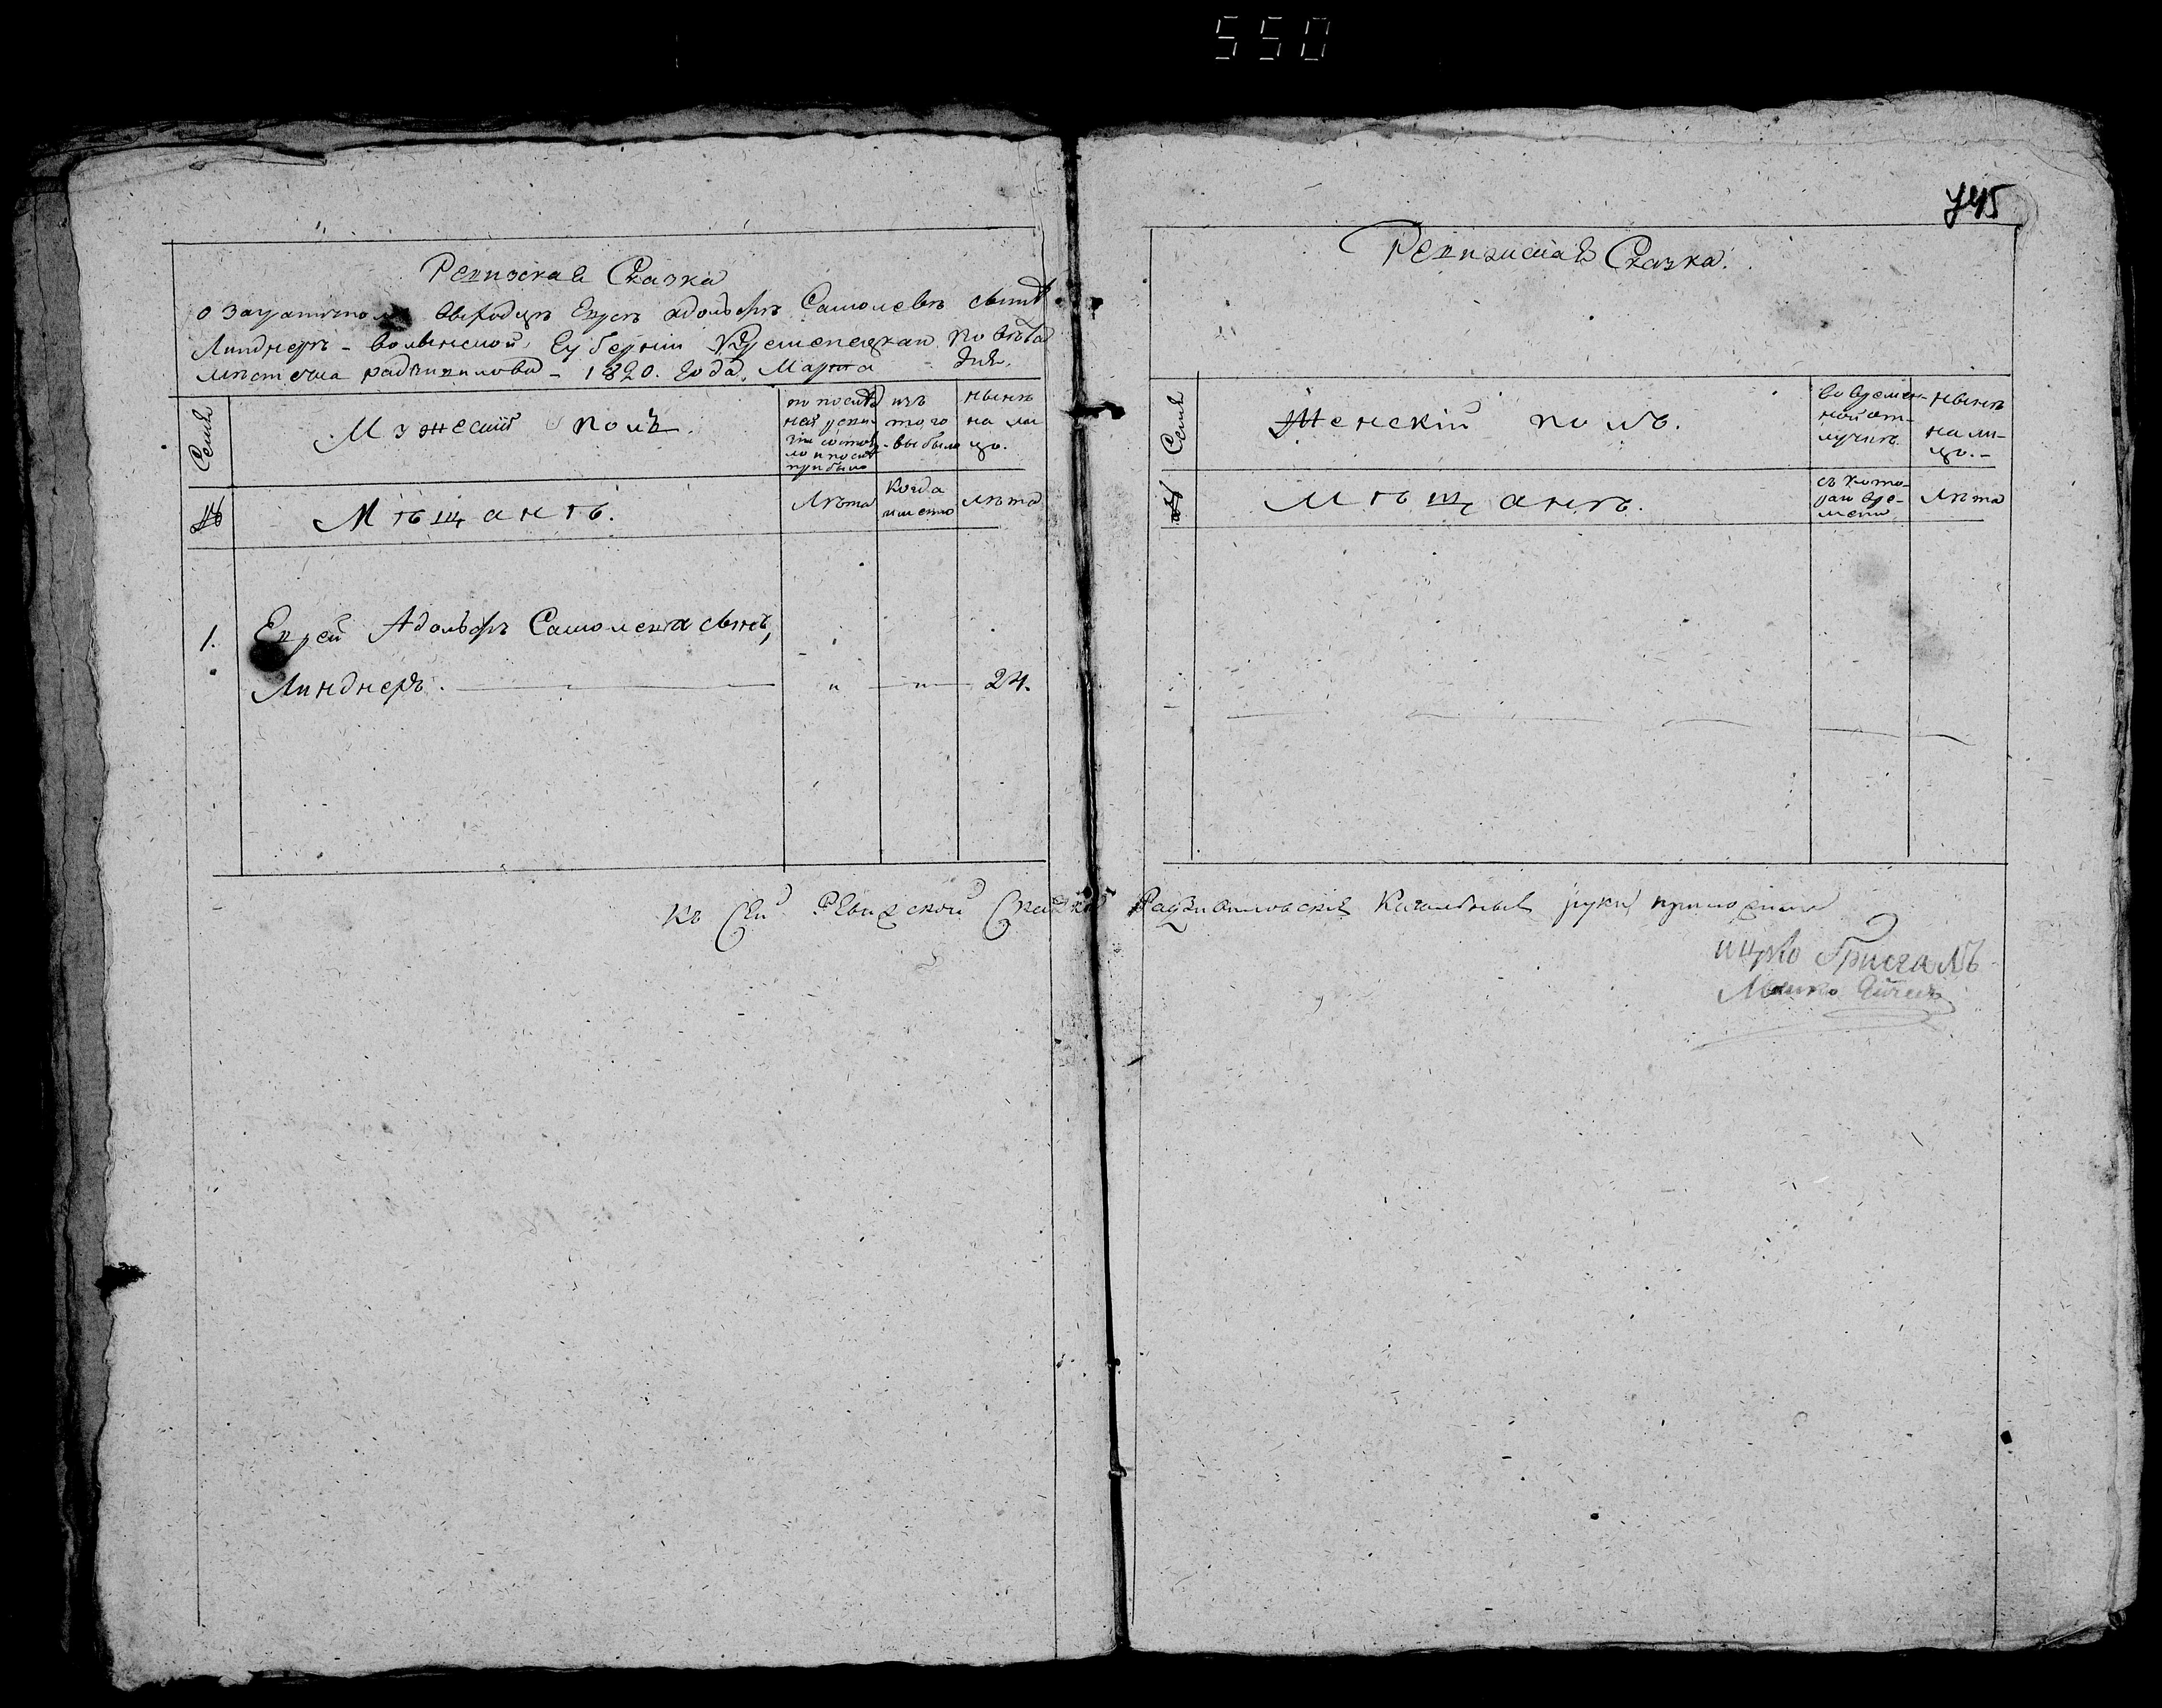 550
745
Ревизская Сказка
о заграничномъ выходцѣ Евреѣ Адольфѣ Самолевѣ сынѣ
Линднерѣ - Волынской Губерніи Кременецкаго Повѣта
мѣстечка радзивилова - 1820. Года. Марта дня.
Семья
Мужескій полъ.
по послѣд
ней реви
зіи состоя
ло и послѣ
прибыло
изъ
того
выбыло
нынѣ
на ли
цо.
№
Мѣщанѣ.
Лѣта
когда
именно
лѣта
1. Еврей Адольфъ Самолева сынъ,
Линднеръ. " " 24.
Ревизская Сказка.
Семья
Женскій полъ.
во времен-
ной от-
лучкѣ
нынѣ
на ли-
цо.-
№
Мѣщанѣ.
съ кото-
раго вре-
мени
Лѣта
къ Сей Ревизской Сказкѣ Радзивиловскіе Кагальные руки приложили
ицко Грисгалъ
Мошко